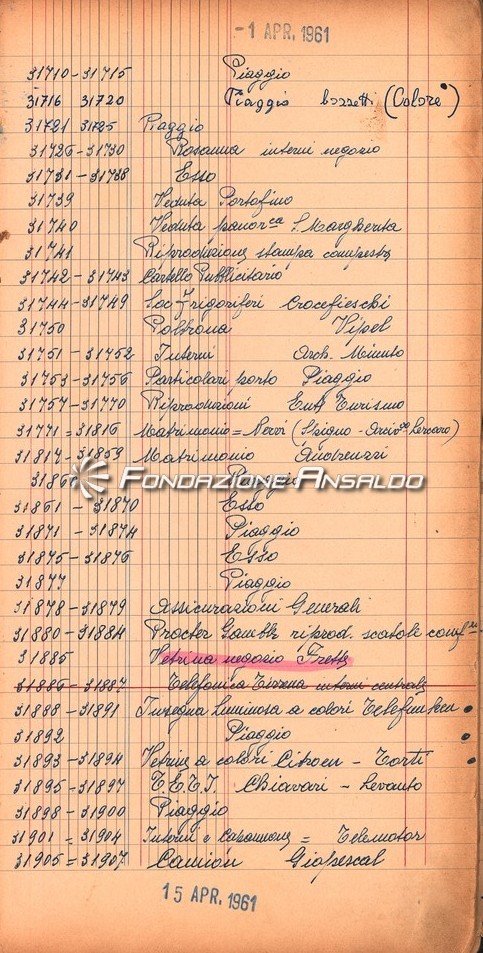 -1 APR. 1961
31710-31715 Piaggio
31716 31720 Piaggio bozzetti (Colore)
31721 31725 Piaggio
31726-31730 Rosanna interni negozio
31731-31738 Esso
31739 Veduta Portofino
31740 Veduta panor.ca S. Margherita
31741 Riproduzione stampa
31742-31743 Cartello Pubblicitario
31744-31749 Soc Frigoriferi Crocefieschi
31750 Poltrona Vipel
31751-31752 Interni Arch. Minuto
31753-31756 Particolari porto Piaggio
31757-31770 Riproduzioni Ente Turismo
31771=31816 Matrimonio = Nervi (
31817-31859 Matrimonio
FONDAZIONE ANSALDO
3186 Piaggio
31861 - 31870 Esso
31871 - 31874 Piaggio
31875-31876 Esso
31877 Piaggio
31878-31879 Assicurazioni Generali
31880-31884 Procter Gamble riprod. scatole
31885 Vetrina negozio Frette
31886-31887 Telefonica Tirrena interni centrale
31888-31891 Insegna luminosa a colori Telefunken
31892 Piaggio
31893-31894 Vetrine a colori Citroen - Torti
31895-31897 T.E.T.I. Chiavari - Levanto
31898-31900 Piaggio
31901 = 31904 Interni e capannone = Telemotor
31905=31907 Camion Giopescal
15 APR. 1961